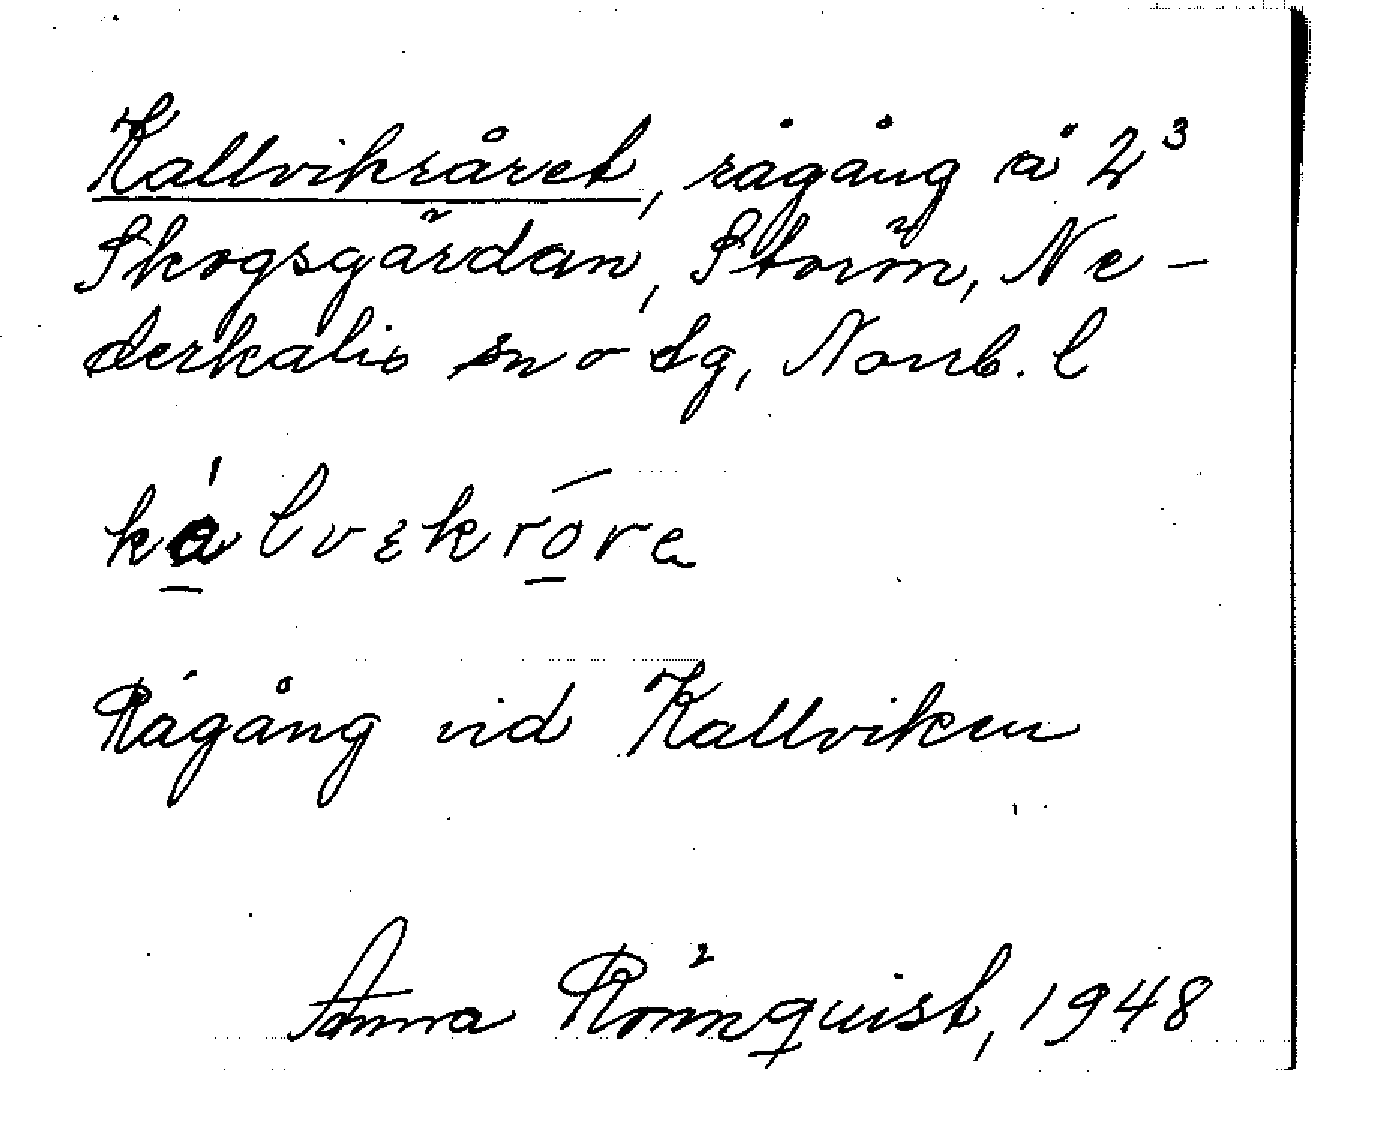 Kallvikråret, rågång å 2³
Skogsgärdan, Storön, Ne-
derkalix sn o tg, Norrb. l
kálvεkróre
Rågång vid Kallviken
Anna Rönnquist, 1948